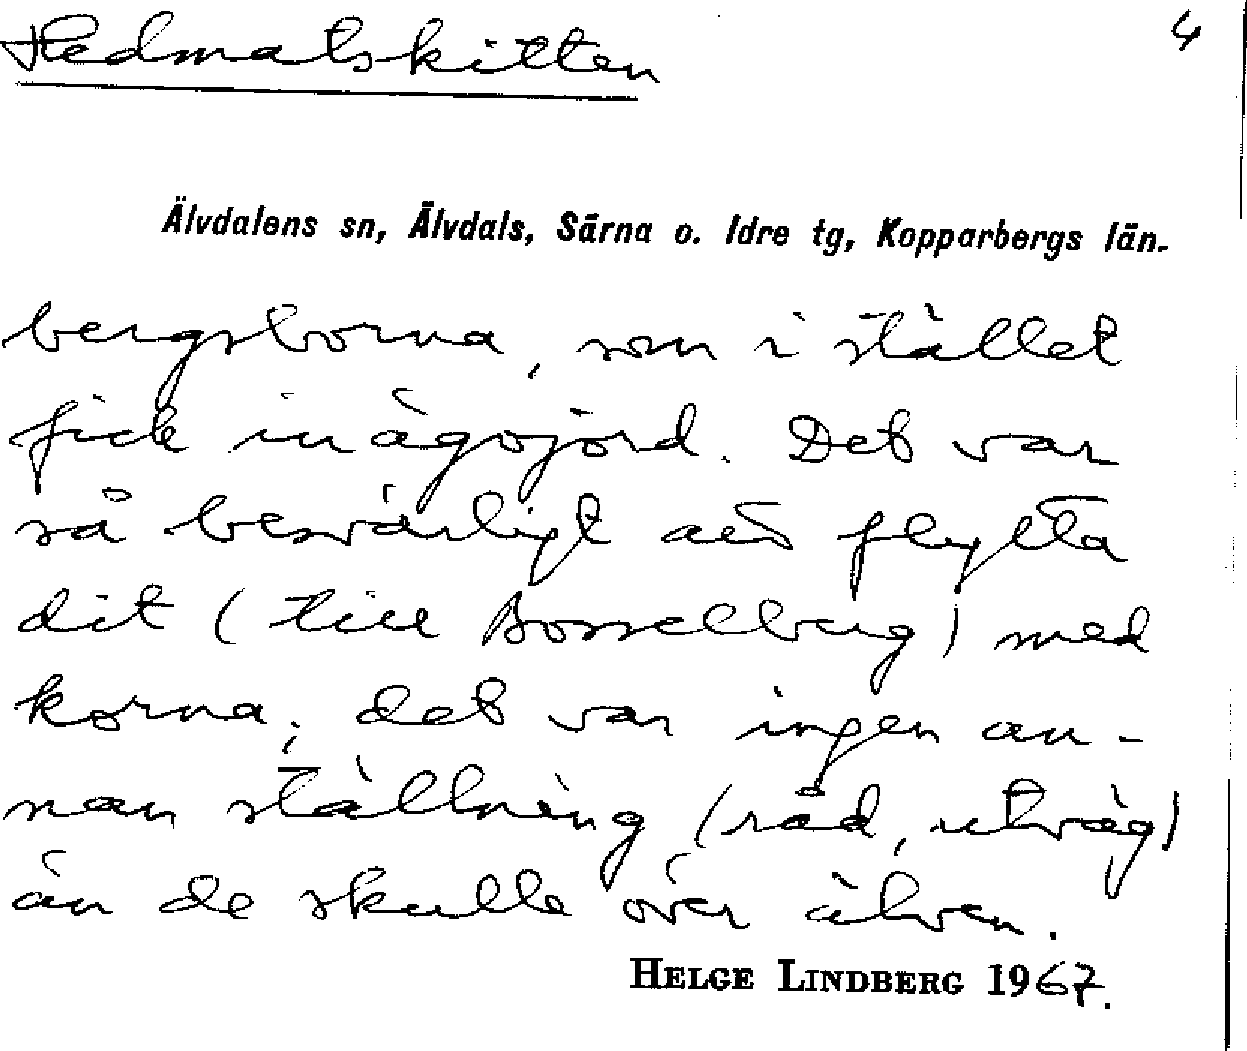 Hedmatskitten
4
Älvdalens sn, Älvdals, Särna o. Idre tg, Kopparbergs län.
bergsborna, som i stället
fick inägojord. Det var
så besvärligt att flytta
dit (till Bosselberg) med
korna; det var ingen an-
nan ställning (råd, utväg)
än de skulle över älven.
HELGE LINDBERG 1967.